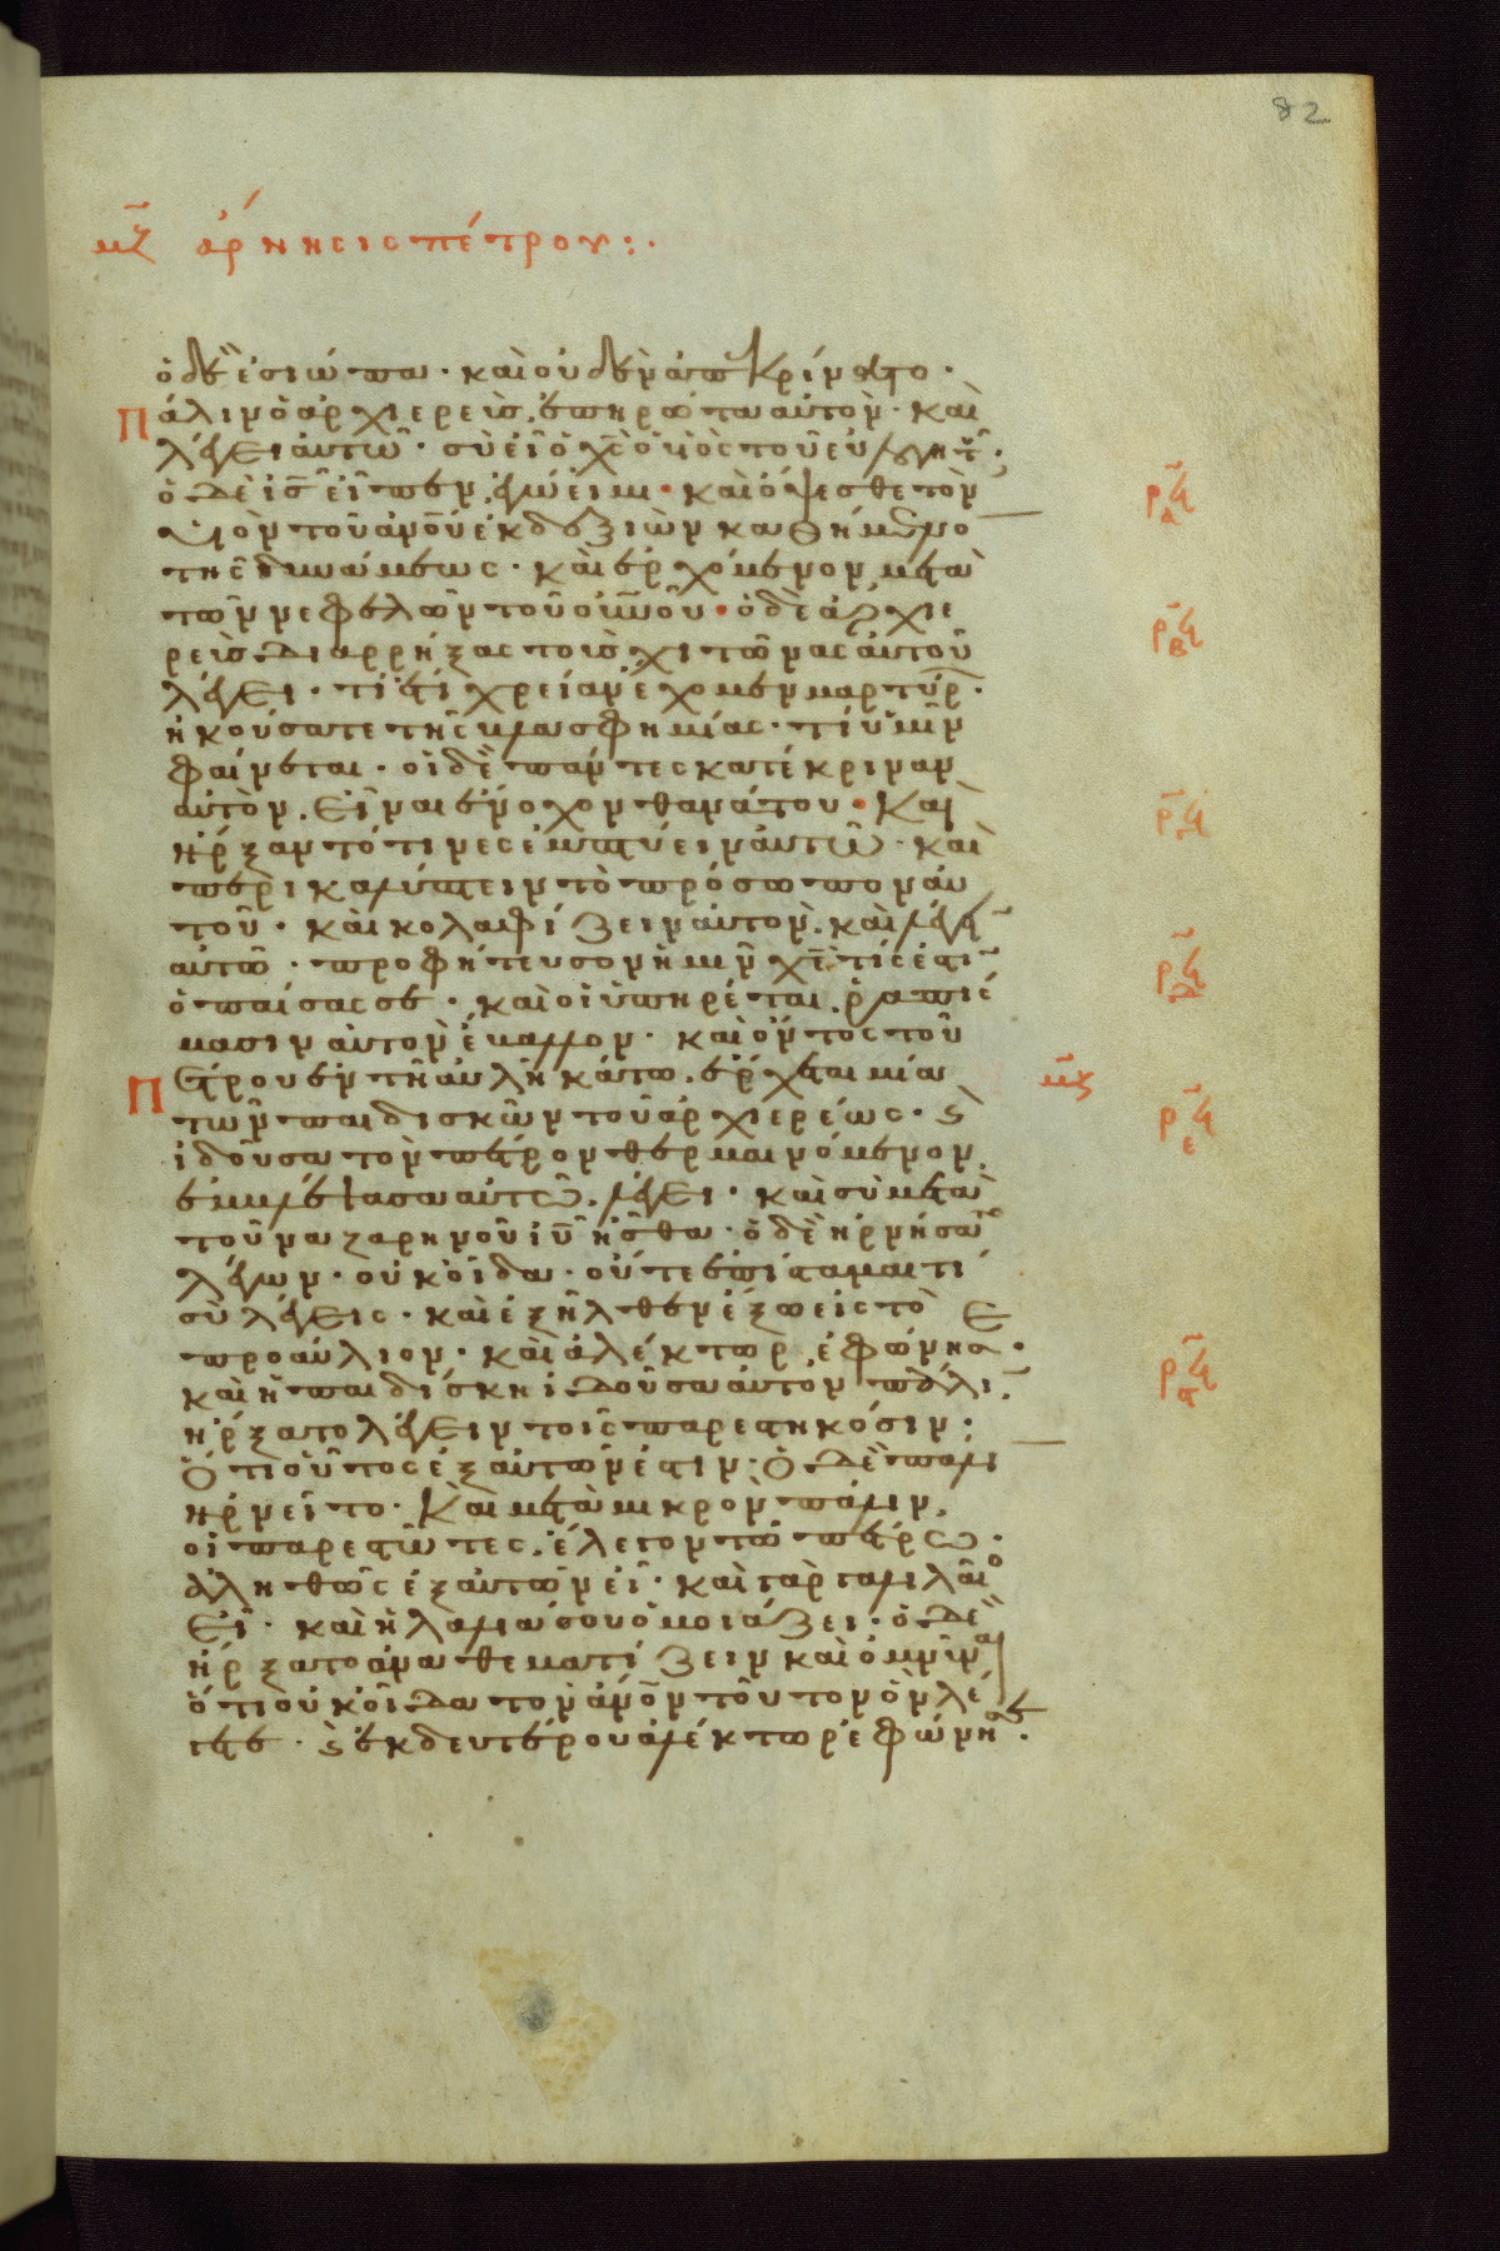 82
μζ ἄρνησις πέτρου:·
ὁ δὲ ἐσιώπα· καὶ οὐδὲν ἀπεκρίνατο·
Πάλιν ὁ ἀρχιερεὺς ἐπηρώτα αὐτόν· καὶ
λέγει αὐτῶ· σὺ εἶ ὁ χς ὁ υἱὸς τοῦ εὐλογητ·
ὁ δὲ ις εἶπεν, ἐγώ εἰμι· καὶ ὄψεσθε τὸν
υἱὸν τοῦ ἀνου ἐκ δεξιῶν καθήμενο
τῆς δυνάμεως· καὶ ἐρχόμενον μετὰ
τῶν νεφελῶν τοῦ οὐνου· ὁ δὲ ἀρχιε
ρεὺς διαρρήξας τοὺς χιτῶνας αὐτοῦ
λέγει· τί ἔτι χρείαν ἔχομεν μαρτύρ·
ἠκούσατε τῆς βλασφημίας· τί ὑμῖν
φαίνεται· οἱ δὲ πάντες κατέκριναν
αὐτὸν, εἶναι ἔνοχον θανάτου· Καὶ
ἤρξαντό τινες ἐμπτύειν αὐτῶ· καὶ
περικαλύπτειν τὸ πρόσωπον αὐ
τοῦ· καὶ κολαφίζειν αὐτὸν, καὶ λέγ
αὐτῶ· προφήτευσον ἡμῖν χε τίς ἐστι
ὁ παίσας σε· καὶ οἱ ὑπηρέται, ῥαπίσ
μασιν αὐτὸν ἔβαλλον· καὶ ὄντος τοῦ
Πέτρου ἐν τῆ αὐλῆ κάτω, ἔρχεται μία μζ
τῶν παιδισκῶν τοῦ ἀρχιερέως· ϗ
ἰδοῦσα τὸν πέτρον θερμαινόμενον,
ἐμβλέψασα αὐτῶ, λέγει· καὶ σὺ μετὰ
τοῦ ναζαρηνοῦ ιυ ἦσθα· ὁ δὲ ἠρνήσατο
λέγων· οὐκ οἶδα· οὔτε ἐπίσταμαι τί
σὺ λέγεις· καὶ ἐξῆλθεν ἔξω εἰς τὸ
προαύλιον· καὶ ἀλέκτωρ ἐφώνησ·
καὶ ἡ παιδίσκη ἰδοῦσα αὐτὸν πάλι
ἤρξατο λέγειν τοῖς παρεστηκόσιν·
Ὅτι οὗτος ἐξ αὐτῶν ἐστιν· ὁ δὲ πάλι
ἠρνεῖτο· Καὶ μετὰ μικρὸν πάλιν,
οἱ παρεστῶτες, ἔλεγον τῶ πέτρω·
ἀληθῶς ἐξ αὐτῶν εἶ· καὶ γὰρ γαλιλαῖο
εἶ· καὶ ἡ λαλιά σου ὁμοιάζει· ὁ δὲ
ἤρξατο ἀναθεματίζειν καὶ ὀμνύναι
ὅτι οὐκ οἶδα τὸν ἀνον τοῦτον ὃν λέ
γετε· ϗ ἐκ δευτέρου ἀλέκτωρ ἐφώνησε·
ρϟ α
ρϟ β
ρϟ γ
ρϟ δ
ρϟ ε
ρϟ ϛ